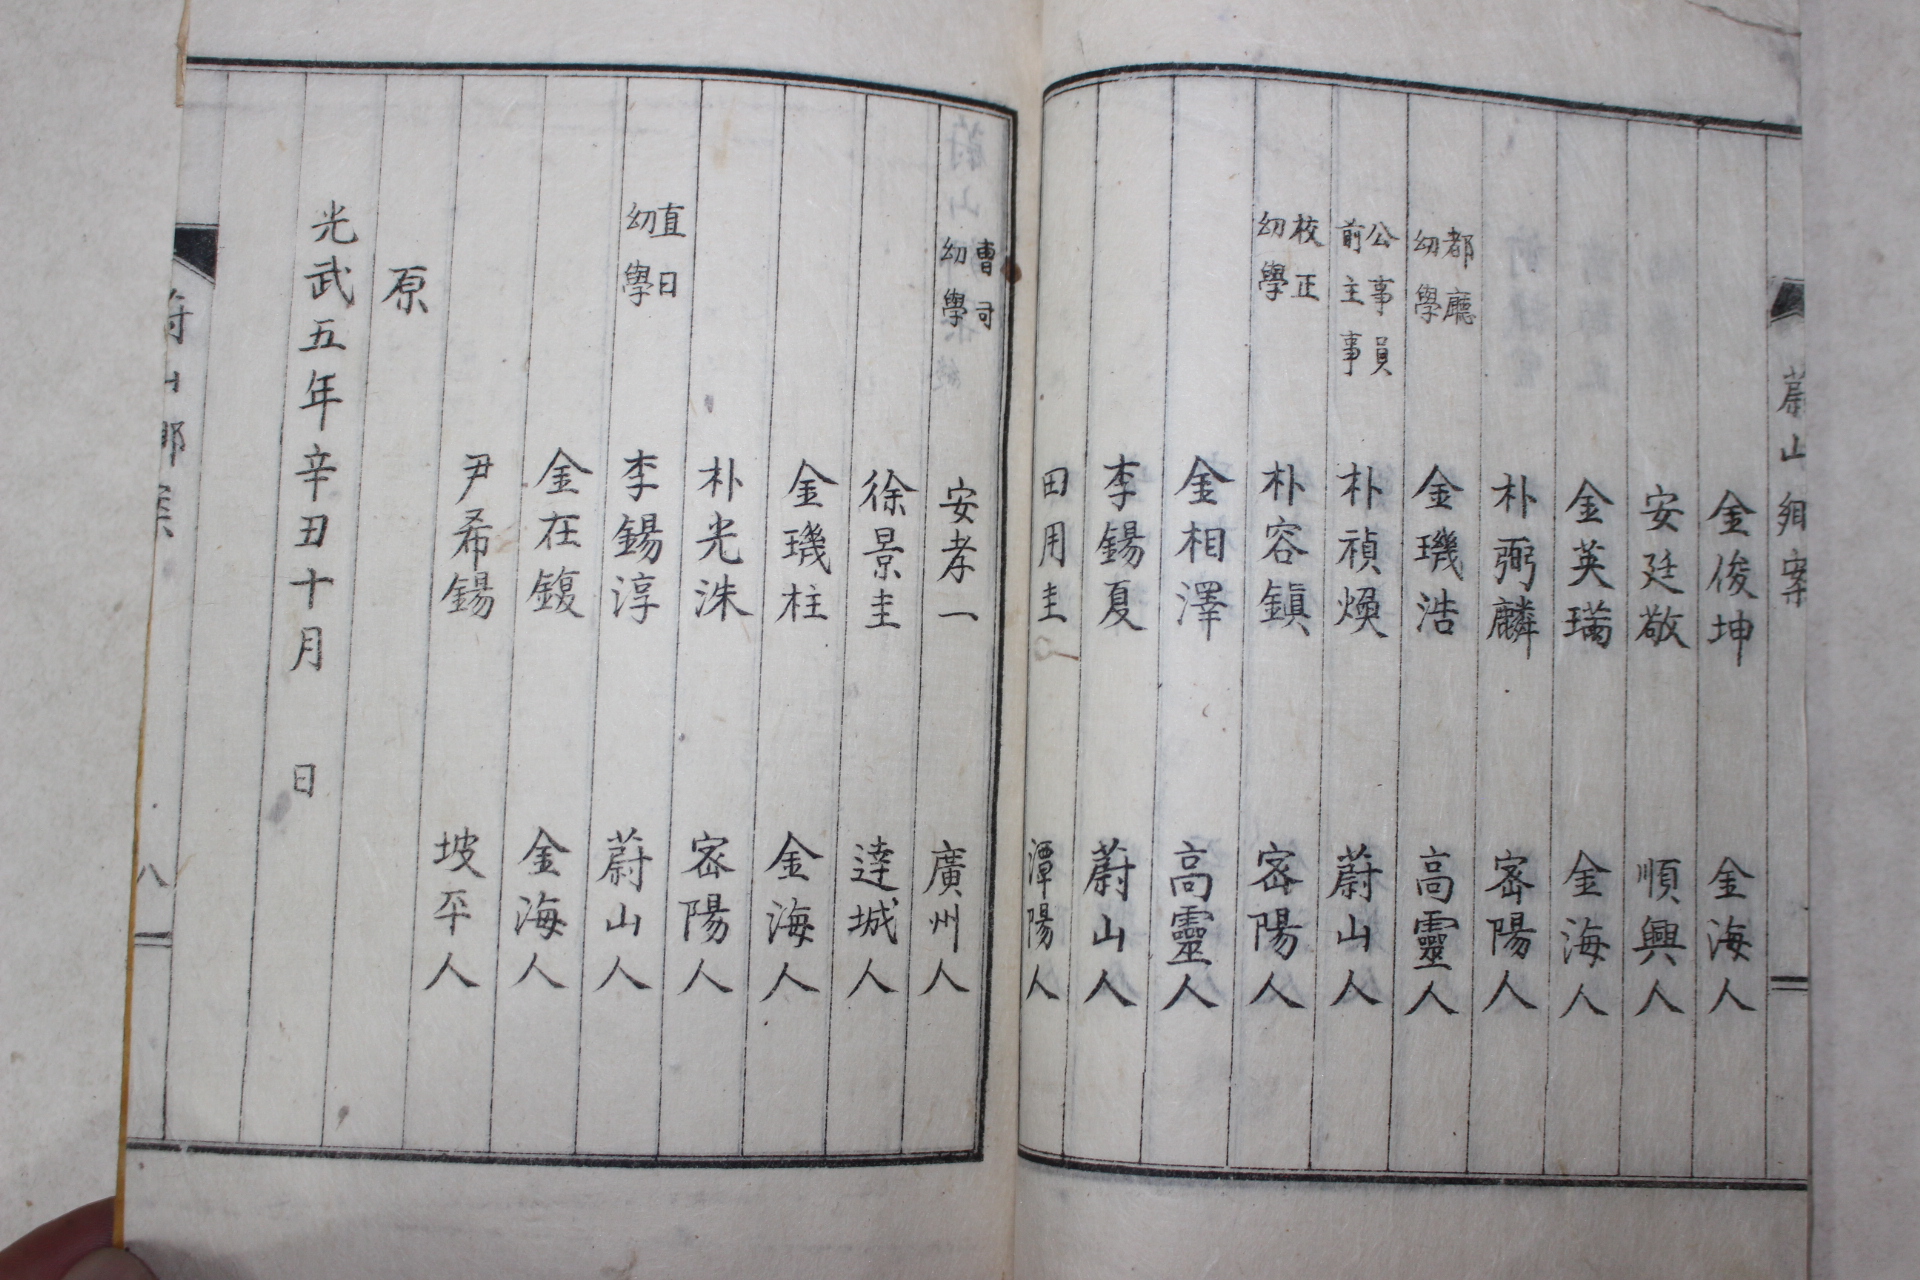 蔚山鄕案
金俊坤 金海人
安廷敬 順興人
金英瑀 金海人
朴弼麟 密陽人
都廳 幼學 金璣浩 高靈人
公事員 前主事 朴禎煥 蔚山人
校正 幼學 朴容鎭 密陽人
金相澤 高靈人
李錫夏 蔚山人
田用圭 潭陽人
曹司 幼學 安孝一 廣州人
徐景圭 達城人
金璣柱 金海人
朴光洙 密陽人
直日 幼學 李錫淳 蔚山人
金在鍑 金海人
尹希錫 坡平人
原
光武五年辛丑十月 日
八